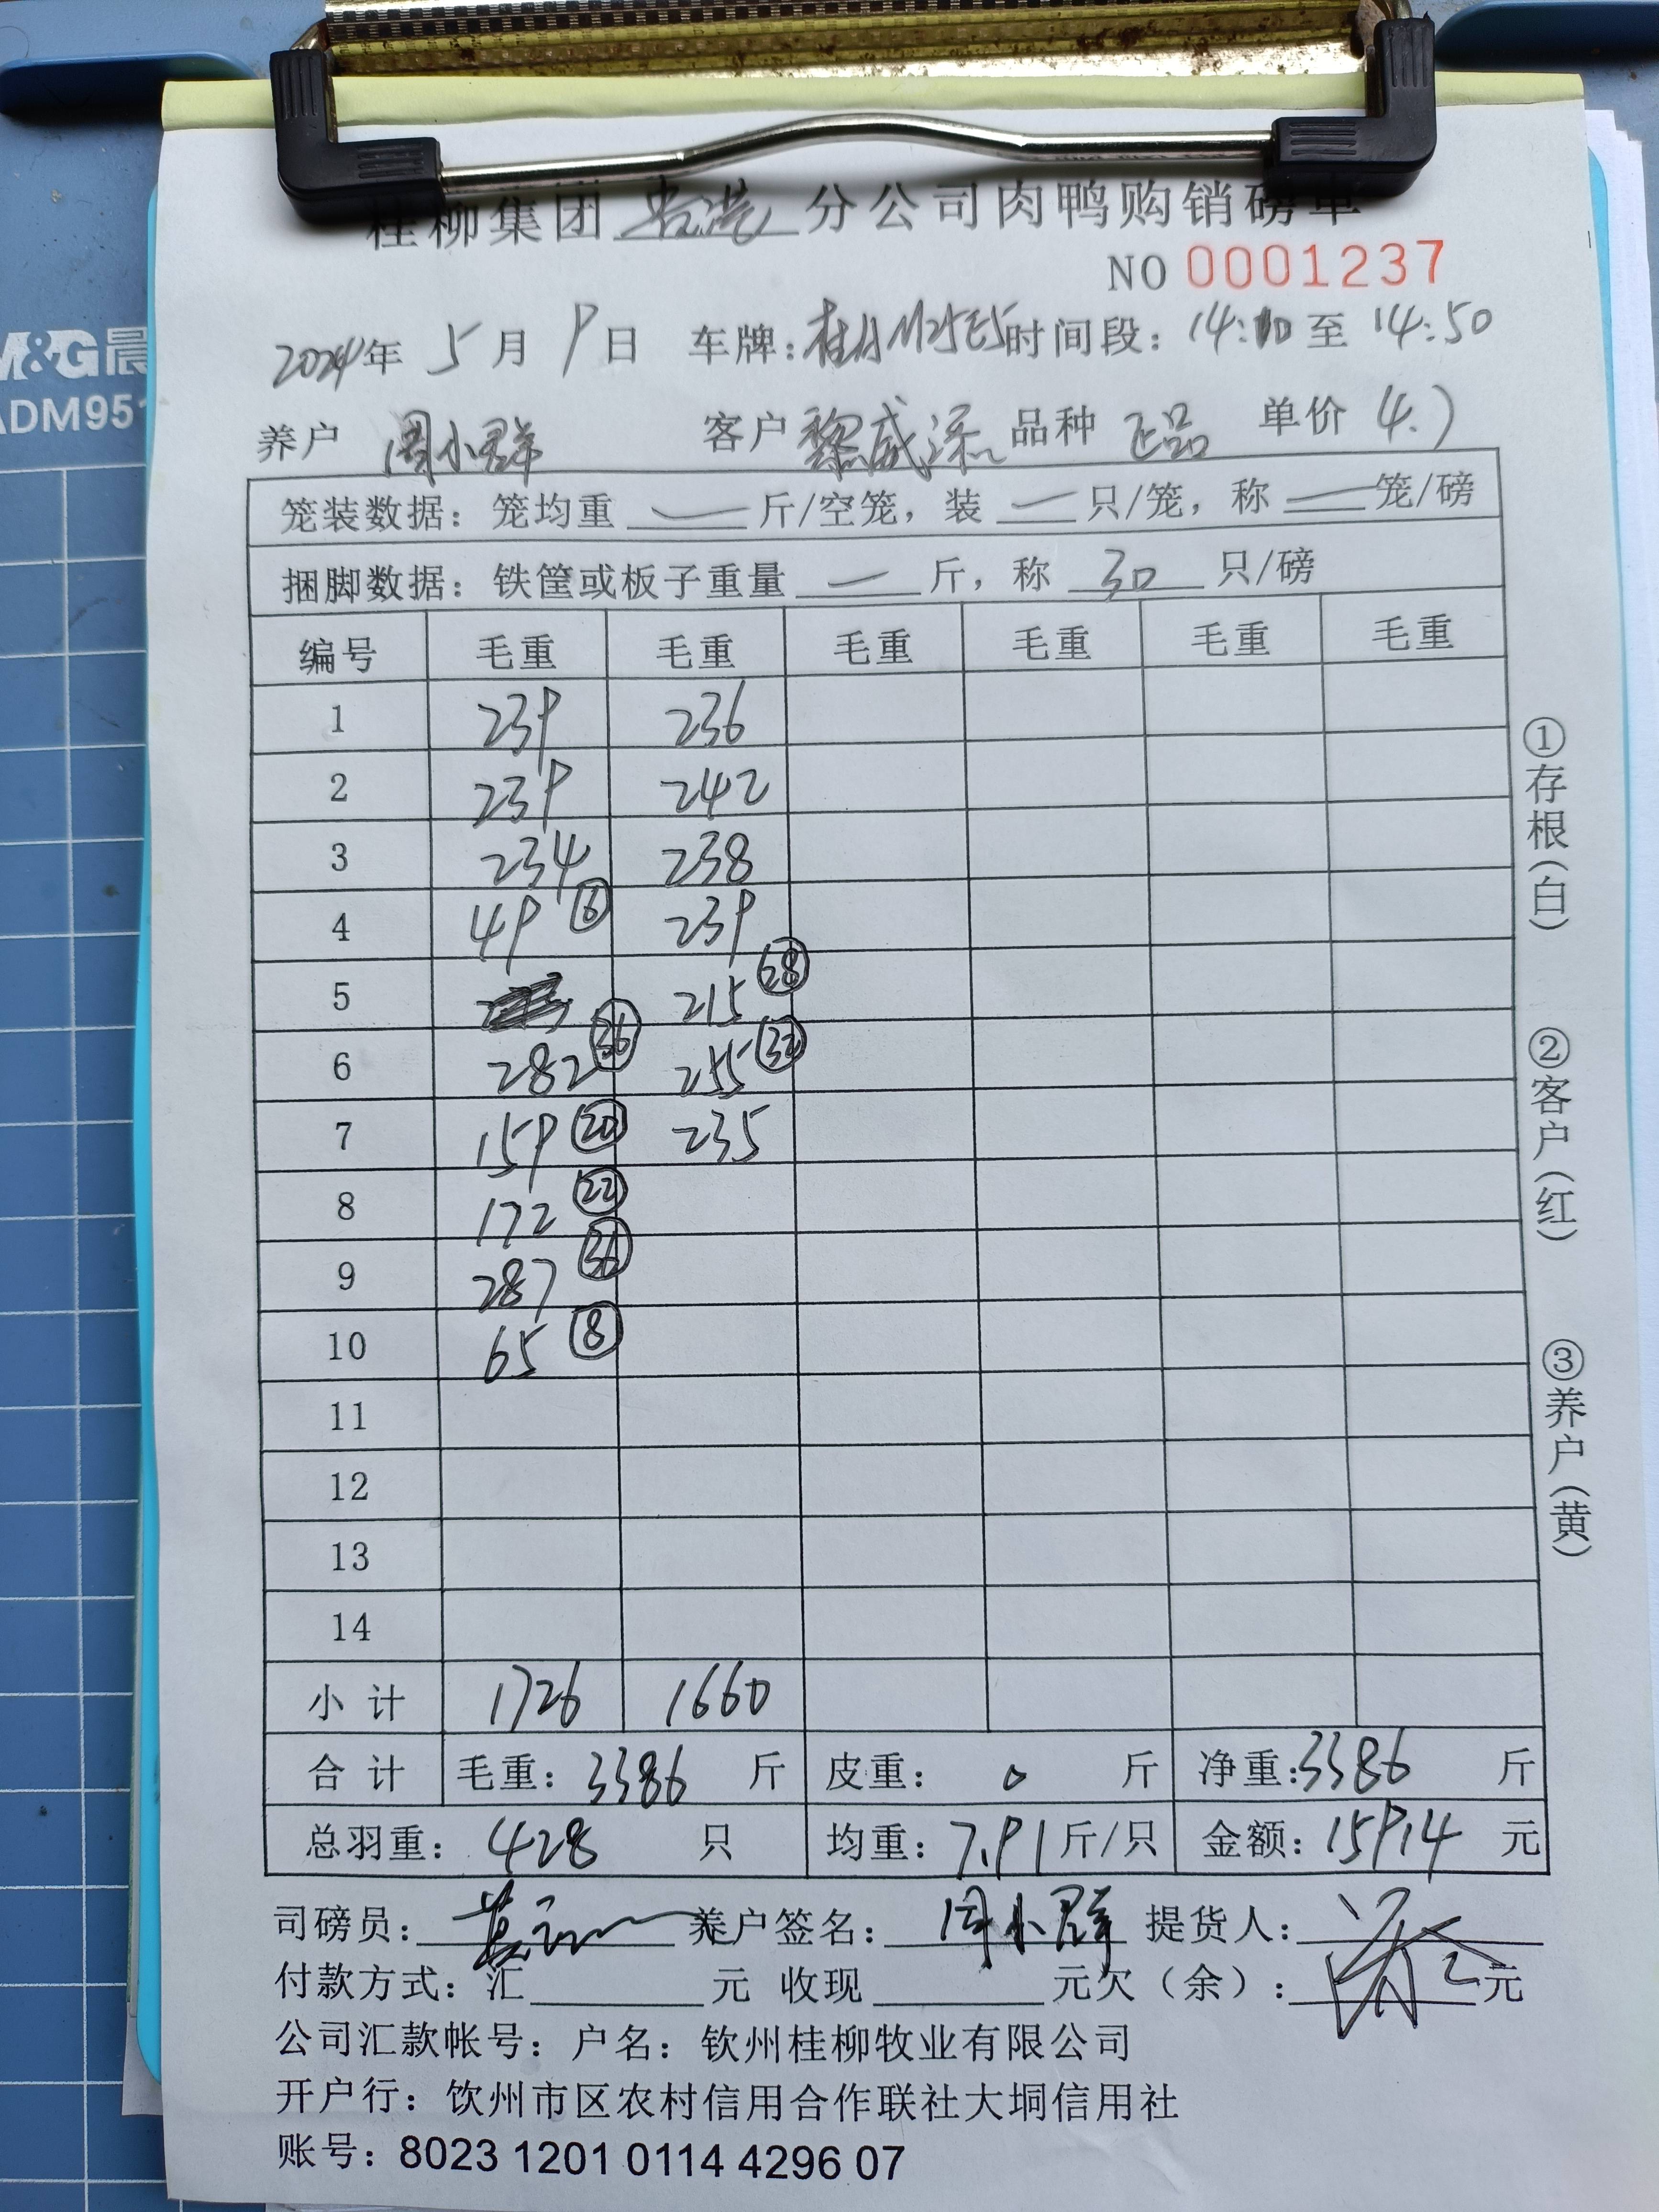 桂柳集团 贵港 分公司肉鸭购销磅单
NO 0001237
2024年 5 月 9 日 车牌: 时间段: 14:10 至 14:50
养户 周小群 客户 黎威深 品种 正品 单价 4.7
笼装数据: 笼均重 — 斤/空笼, 装 — 只/笼, 称 — 笼/磅
捆脚数据: 铁筐或板子重量 — 斤, 称 30 只/磅
编号 毛重 毛重 毛重 毛重 毛重 毛重
1 239 236
2 239 242
3 234 238
4 49 ⑥ 239
5 215 ㉘
6 282 ㊱ 255 ㉜
7 159 ⑳ 235
8 172 ㉒
9 287 ㊱
10 65 ⑧
11
12
13
14
小计 1726 1660
合计 毛重: 3386 斤 皮重: 0 斤 净重: 3386 斤
总羽重: 428 只 均重: 7.91 斤/只 金额: 15914 元
司磅员: 养户签名: 周小群 提货人:
付款方式: 汇 元 收现 元欠(余): 元
公司汇款帐号: 户名: 钦州桂柳牧业有限公司
开户行: 钦州市区农村信用合作联社大垌信用社
账号: 8023 1201 0114 4296 07
①存根(白)
②客户(红)
③养户(黄)
M&G晨
ADM951